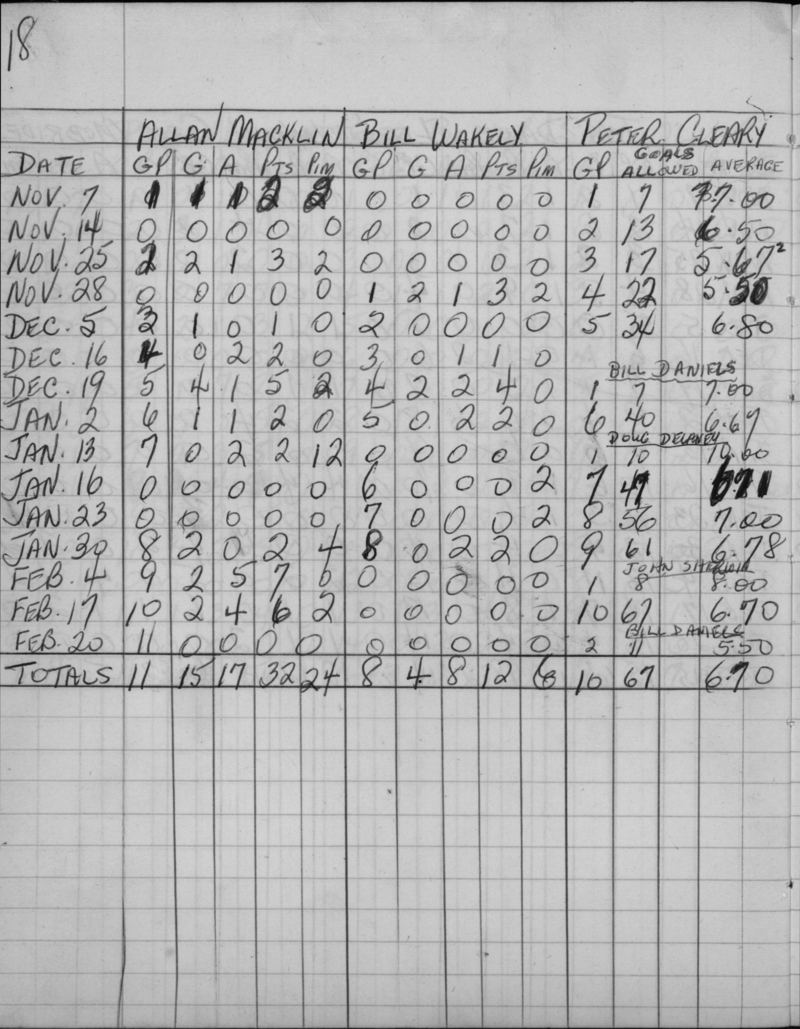 18
ALLAN MACKLIN BILL WAKELY PETER CLEARY
DATE GP G A PTS PIM GP G A PTS PIM GP GOALS ALLOWED AVERAGE
NOV. 7 1 1 1 2 2 0 0 0 0 0 1 7 7.00
NOV. 14 0 0 0 0 0 0 0 0 0 0 2 13 6.50
NOV. 25 2 2 1 3 2 0 0 0 0 0 3 17 5.67²
NOV. 28 0 0 0 0 0 1 2 1 3 2 4 22 5.50
DEC. 5 3 1 0 1 0 2 0 0 0 0 5 34 6.80
DEC. 16 4 0 2 2 0 3 0 1 1 0
BILL DANIELS
DEC. 19 5 4 1 5 2 4 2 2 4 0 1 7 7.00
JAN. 2 6 1 1 2 0 5 0 2 2 0 6 40 6.67
DOUG DELANEY
JAN. 13 7 0 2 2 12 0 0 0 0 0 1 10 10.00
JAN. 16 0 0 0 0 0 6 0 0 0 2 7 47 6.71
JAN. 23 0 0 0 0 0 7 0 0 0 2 8 56 7.00
JAN. 30 8 2 0 2 4 8 0 2 2 0 9 61 6.78
JOHN
FEB. 4 9 2 5 7 0 0 0 0 0 0 1 8 8.00
FEB. 17 10 2 4 6 2 0 0 0 0 0 10 67 6.70
BILL DANIELS
FEB. 20 11 0 0 0 0 0 0 0 0 0 2 11 5.50
TOTALS 11 15 17 32 24 8 4 8 12 6 10 67 6.70